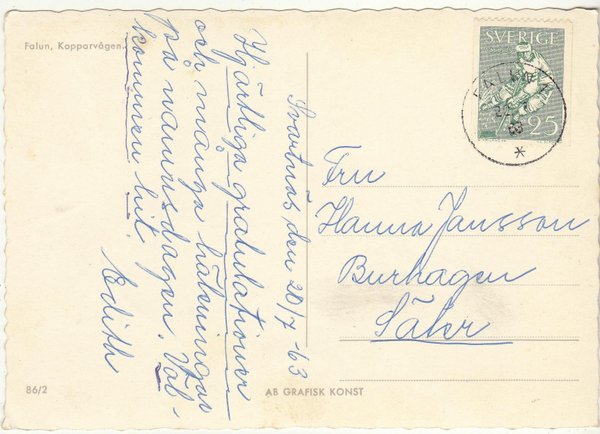 Falun, Kopparvågen.
SVERIGE
25
FALUN
Svartnäs den 20/7-63
Hjärtliga gratulationer
och många hälsningar
på namnsdagen. Väl-
kommen hit.
Edith
Fru
Hanna Jansson
Burhagen
Säter
86/2
AB GRAFISK KONST